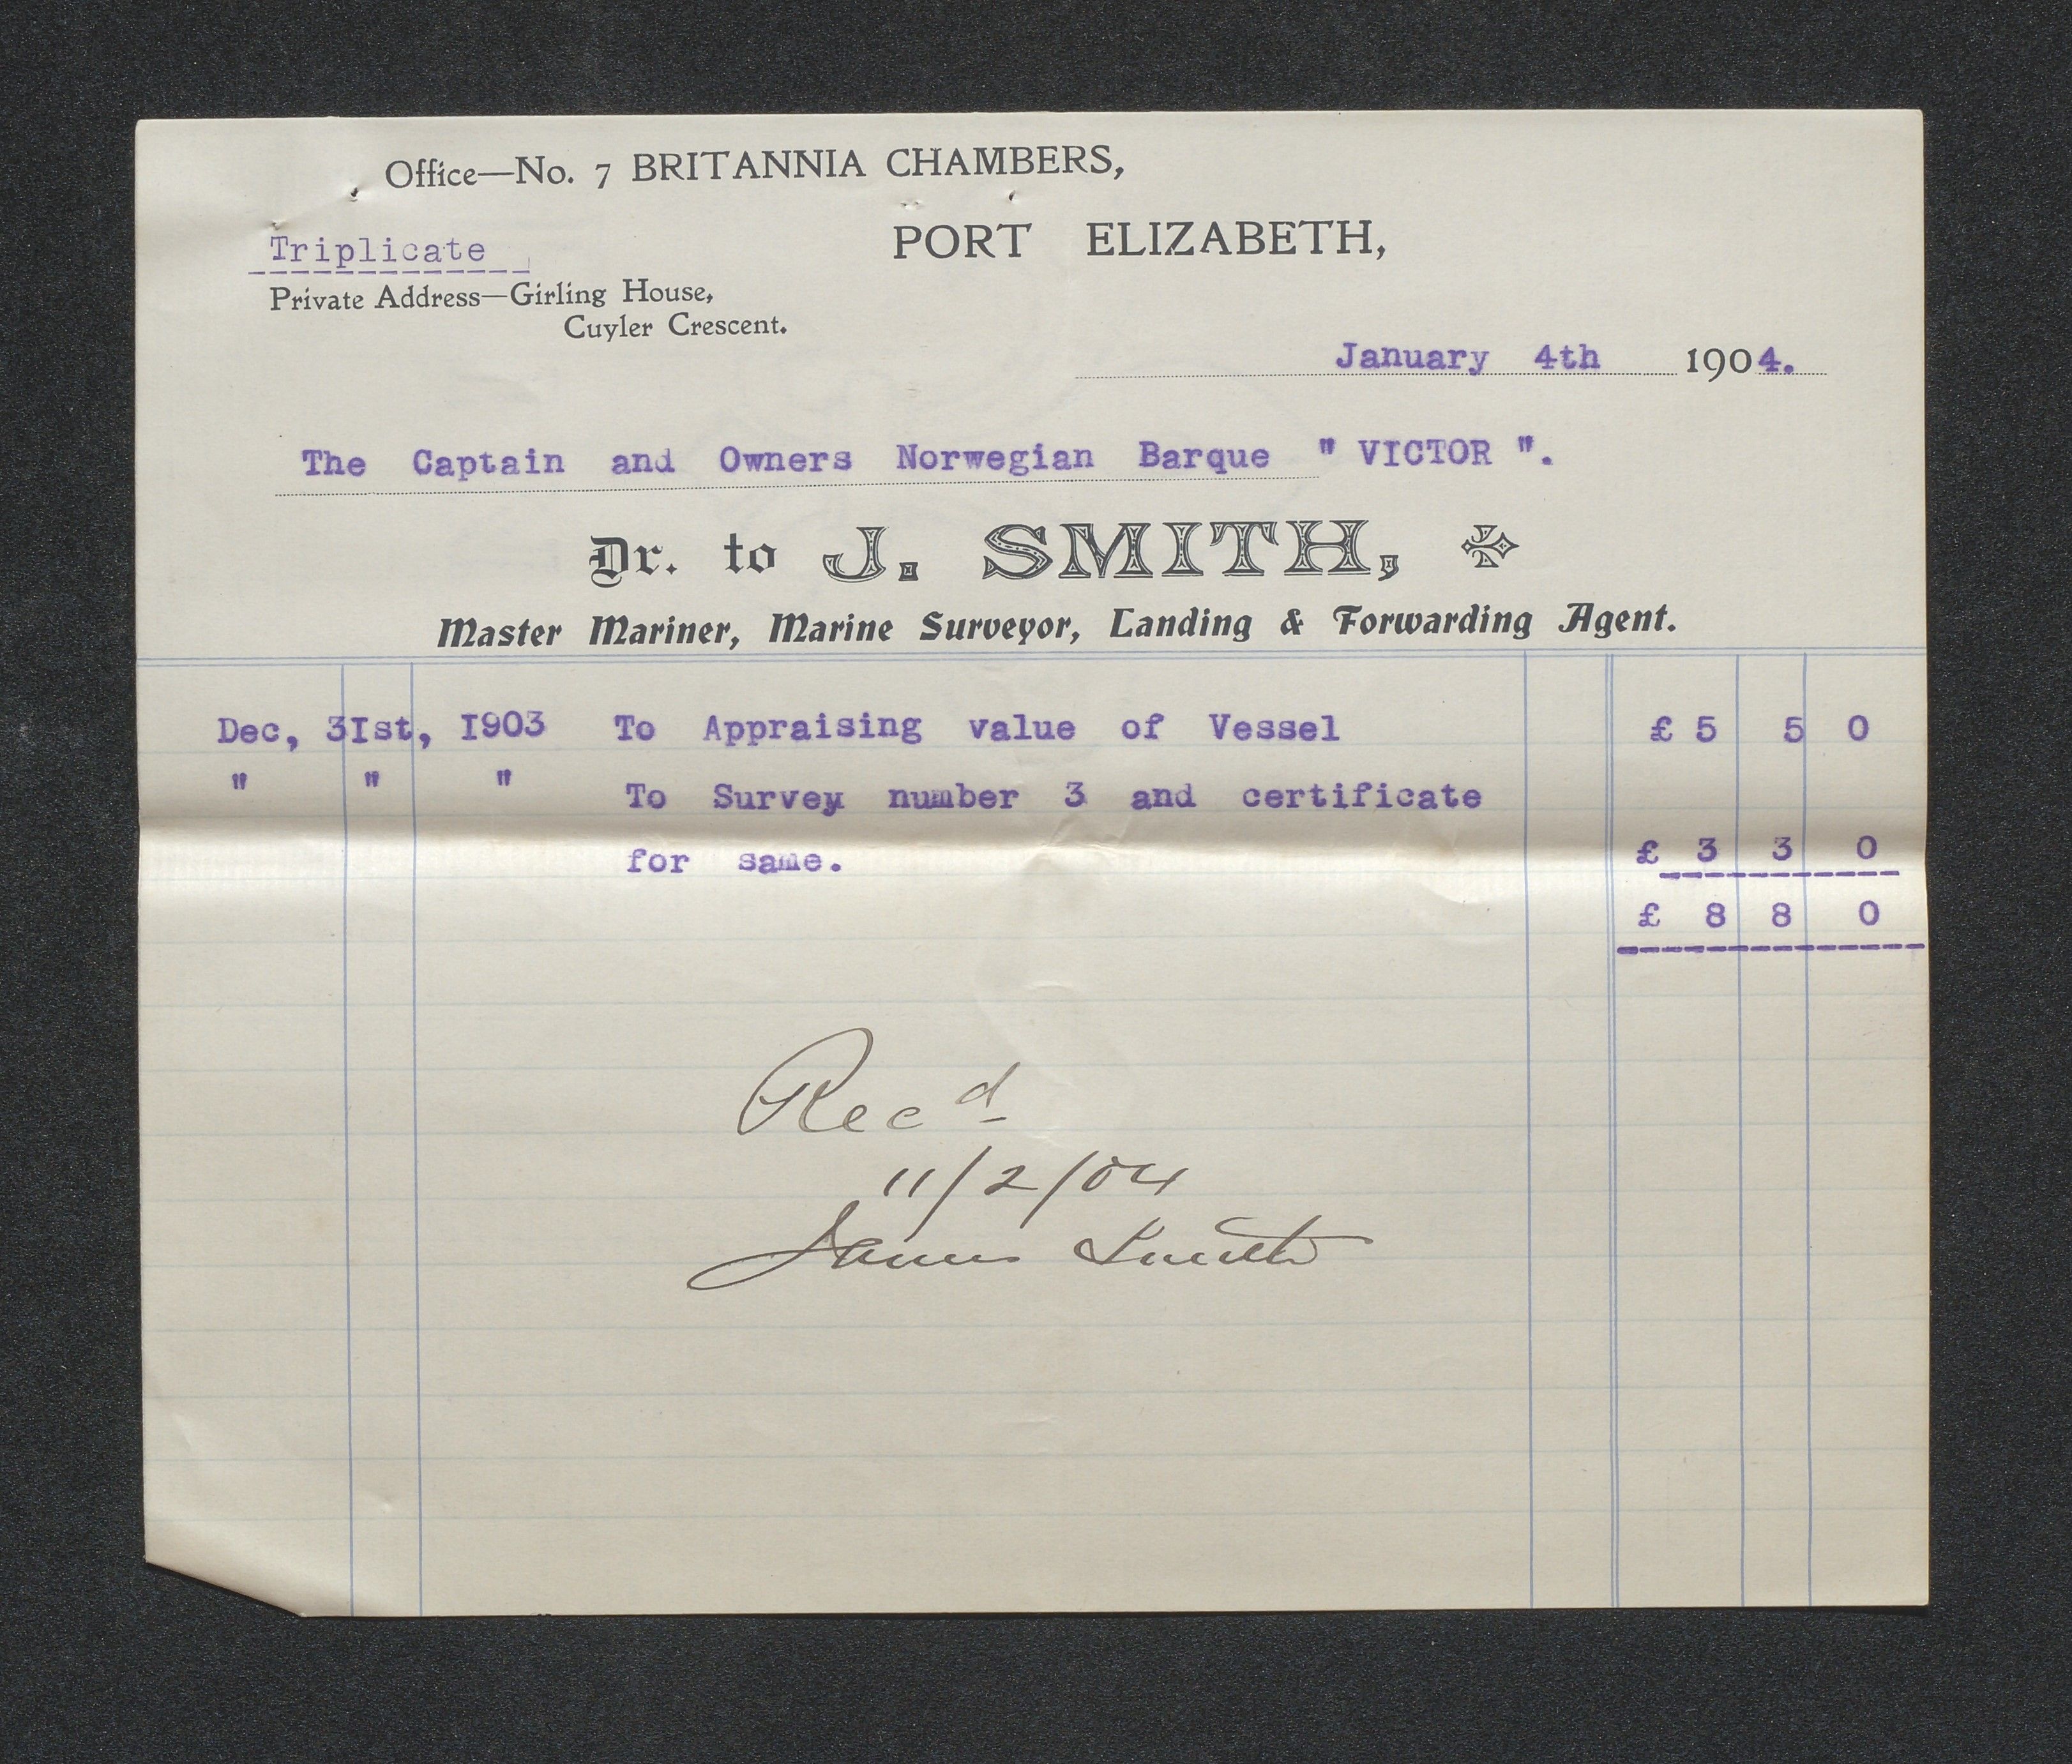 Office—No. 7 BRITANNIA CHAMBERS,
PORT ELIZABETH,
Triplicate
Private Address—Girling House,
Cuyler Crescent.
January 4th 1904.
The Captain and Owners Norwegian Barque " VICTOR ".
Dr. to J. SMITH,
Master Mariner, Marine Surveyor, Landing & Forwarding Agent.
Dec, 3Ist, I903 To Appraising value of Vessel £ 5 5 0
" " " To Survey number 3 and certificate
for same. £ 3 3 0
£ 8 8 0
Recd
11/2/04
James Smith